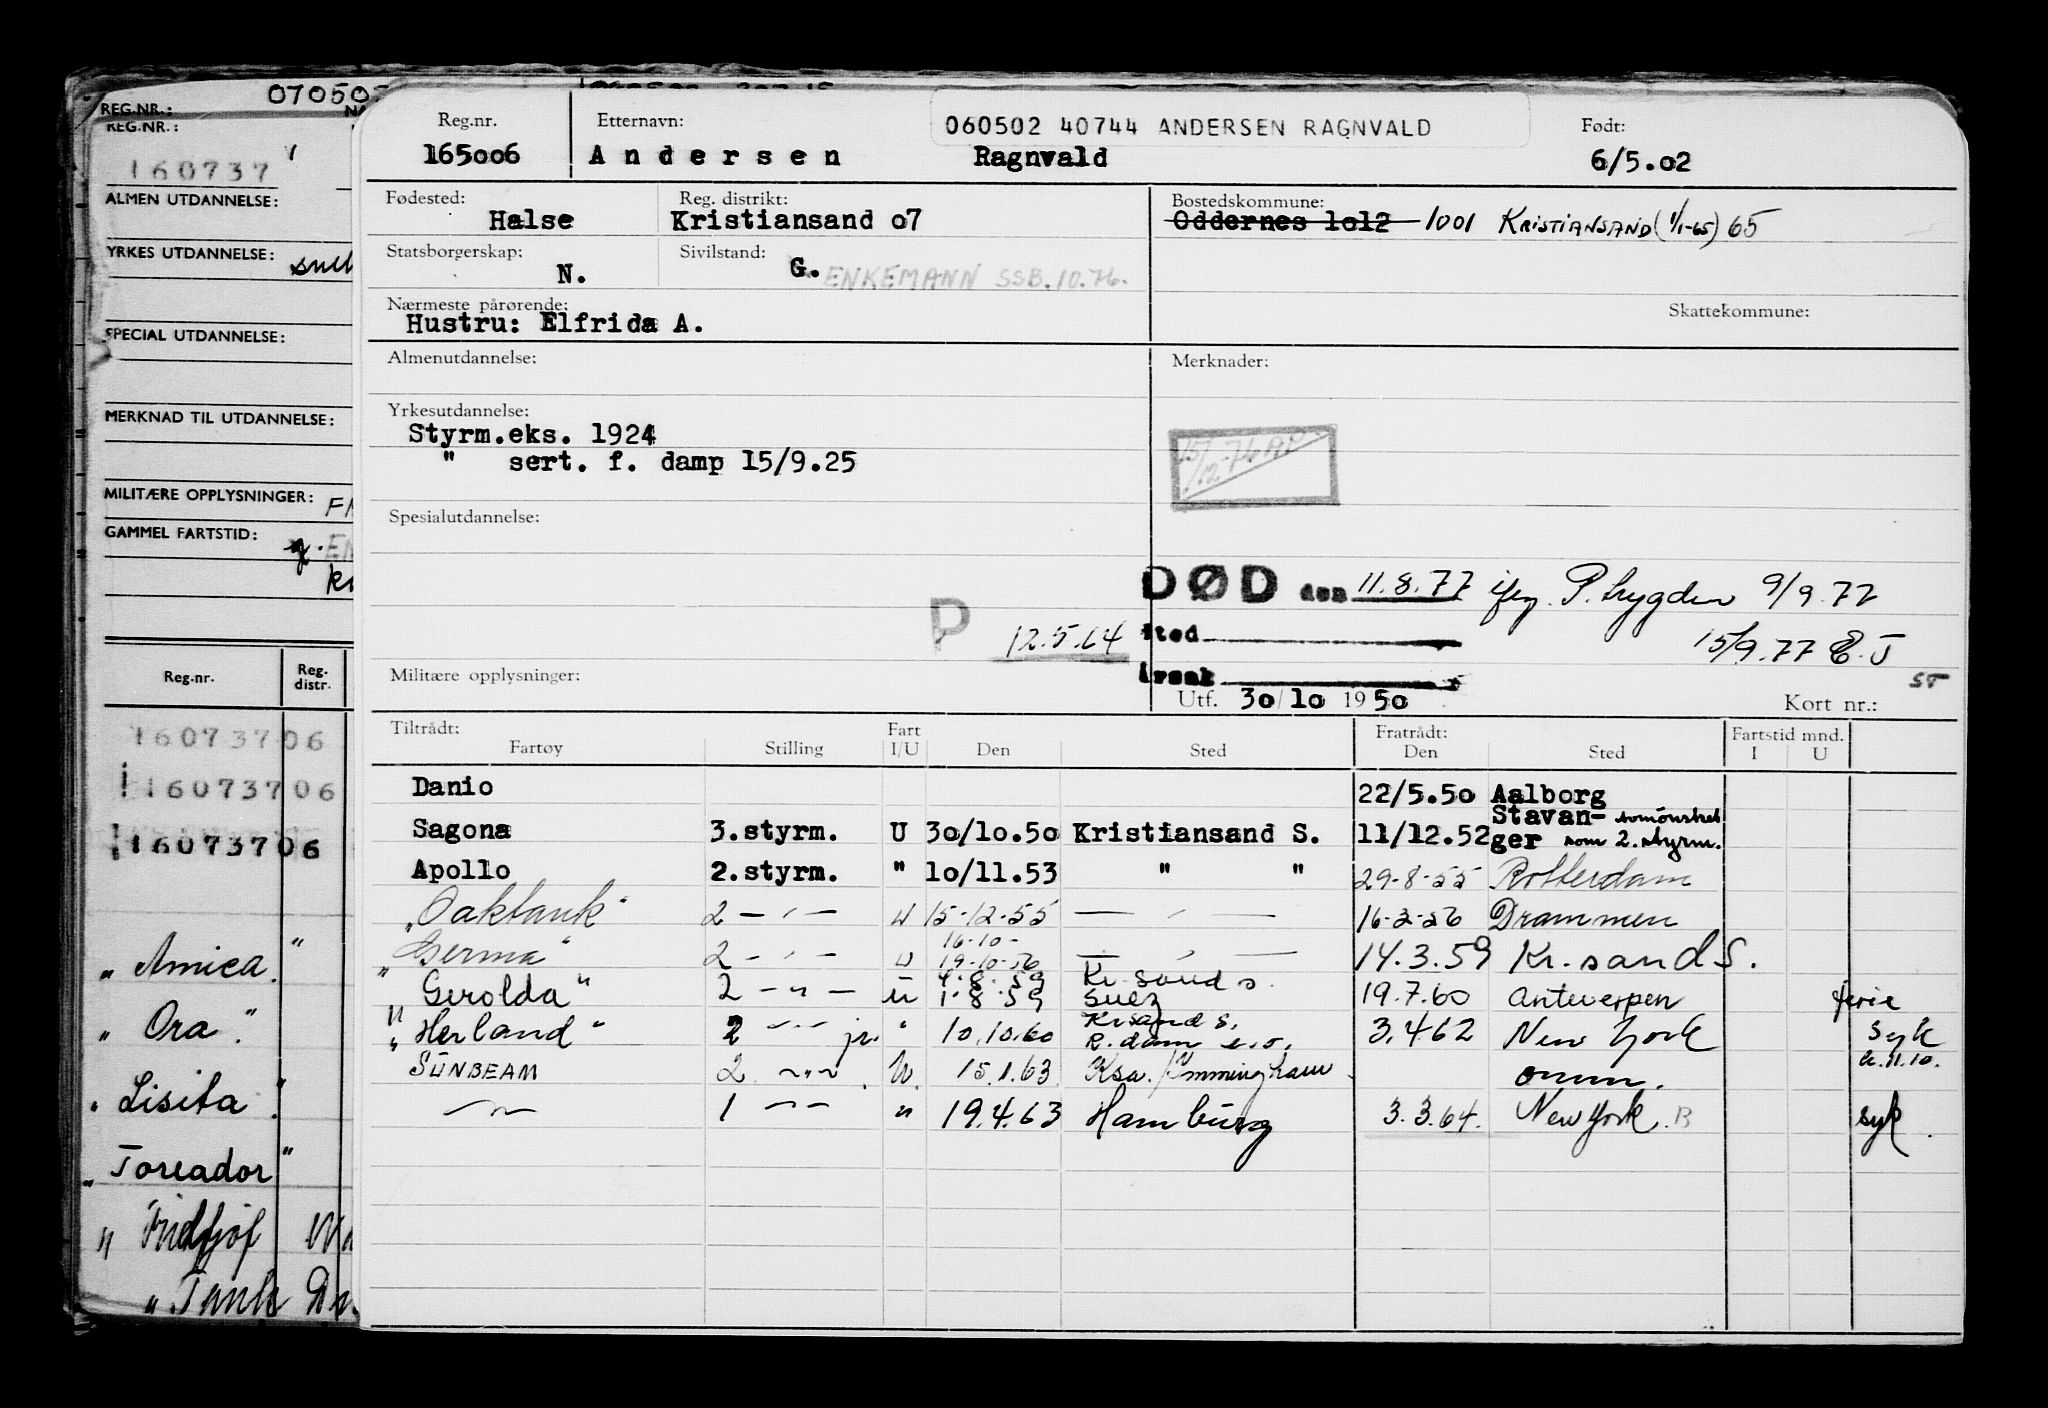 REG.NR.: 070505
REG.NR.:
160737
ALMEN UTDANNELSE:
YRKES UTDANNELSE:
SPECIAL UTDANNELSE:
MERKNAD TIL UTDANNELSE:
MILITÆRE OPPLYSNINGER:
GAMMEL FARTSTID:
Reg.nr. Reg. distr.
16073706
16073706
16073706
" Amica "
" Ora "
" Lisita "
" Toreador "
" Fridtjof
" Tank
Reg.nr. Etternavn: 060502 40744 ANDERSEN RAGNVALD Født:
165006 Andersen Ragnvald 6/5.02
Fødested: Reg. distrikt: Bostedskommune:
Halse Kristiansand 07 Oddernes 1012 1001 KRISTIANSAND (1/1-65) 65
Statsborgerskap: Sivilstand:
N. G. ENKEMANN SSB.10.76.
Nærmeste pårørende: Skattekommune:
Hustru: Elfrida A.
Almenutdannelse: Merknader:
Yrkesutdannelse:
Styrm.eks. 1924
" sert. f. damp 15/9.25
15/12-76 AP
Spesialutdannelse:
DØD den 11.8.77 ifflg. P. trygden 9/9.77
P 12.5.64 Sted 15/9.77 E.J
Militære opplysninger: Årsak
Utf. 30/10 1950 Kort nr.:
Tiltrådt: Fart Fratrådt: Fartstid mnd.
Fartøy Stilling I/U Den Sted Den Sted I U
Danio 22/5.50 Aalborg
Sagona 3.styrm. U 30/10.50 Kristiansand S. 11/12.52 Stavanger omønstret som 2. styrm.
Apollo 2.styrm. " 10/11.53 " " 29-8-55 Rotterdam
"Oaktank" 2 — " — U 15-12-55 — " — 16-2-56 Drammen
"Germa" 2 — " — U 16-10- 19-10-56 — " — 14.3.59 Kr.sand S.
"Gerolda" 2 — " — U 4.8.59 1.8.59 Kr.sand S. Suez 19.7.60 Antwerpen ferie
"Herland" 2 — " — jr. " 10.10.60 Kr.sand S. R.dam e.o. 3.4.62 New York syk
SUNBEAM 2 — " — U. 15.1.63 Ksa./Immingham omm.
— " — 1 — " — " 19.4.63 Hamburg 3.3.64. New York. B syk